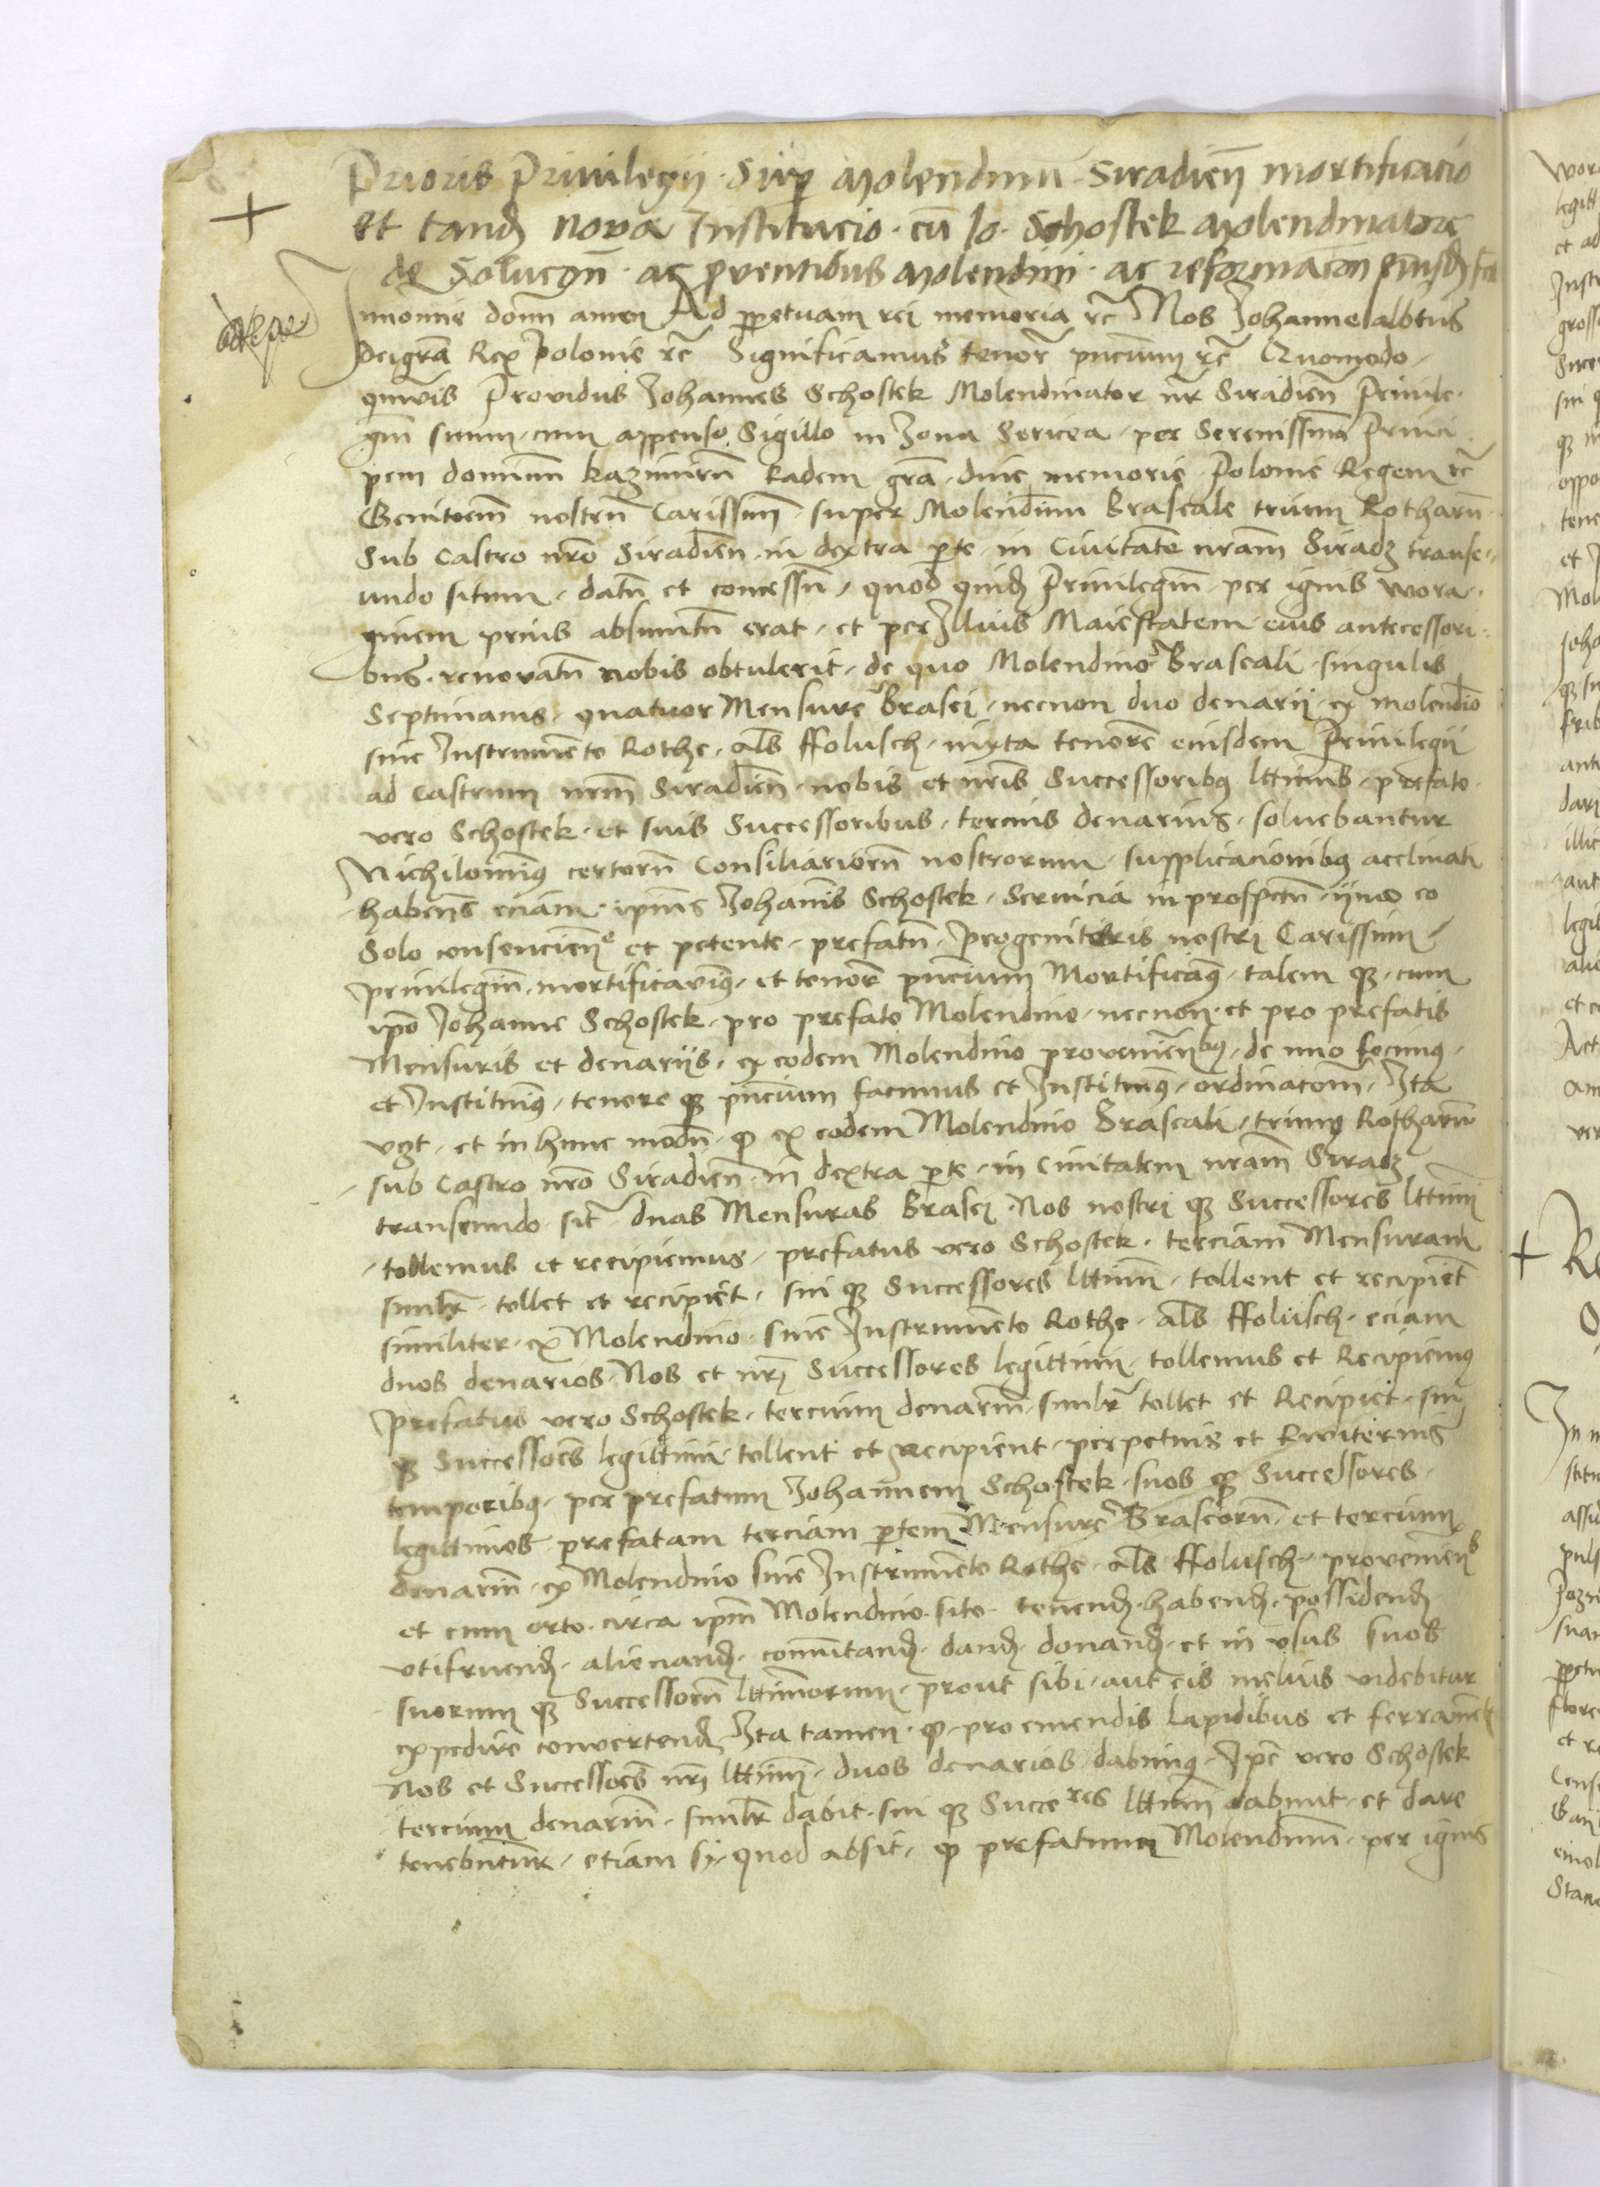 Prioris Privilegij sup Molendinu Siradien mortificacio
et tand nova Institucio cu Jo Schostek Molendinatore
de Solucon ac proventibus Molendini ac reformacon eiusd
In nomine domi amen Ad perpetuam rei memoria rc Nos Johannes albtus
Dei gra Rex Polonie rc Significamus tenor pncium rc Quomodo
quivis Providus Johannes Schostek Molendinator nr Siradien Privile
gm suum cum appenso Sigillo in Zona Sericea per Serenissimu Princi
pem dominum Kazimiru Eadem gra dive memorie Polonie Regem rc
Genitorem nostru Carissim super Molendinu Braseale trium Rotharu
Sub Castro nro Siradien in dextra pte in Civitatem nram Siradz transe
undo situm datu et concessu quod quid Privilegiu per ignis vora
ginem prius absumtu erat et per Illius Maiestatem eius antecessori
bus renovatu nobis obtulerit de quo Molendino Braseali singulis
Septimanis quatuor Mensure Brasei necnon duo denarij ex molendino
sive Instrumento Rothe als ffolusch iuxta tenore eiusdem Privilegij
ad Castrum nrm Siradien nobis et nris Successoribus lttimis prefato
vero Schostek et suis Successoribus tercius denarius solvebantur
Nichilominus certoru Consiliarioru nostrorum supplicacionibus acclinati
habens eciam ipius Johanis Schostek Servicia in prospectu ymo eo
Solo consencien et petente prefatu progenitoris nostri Carissim
privilegiu mortificavimus et tenor pncium Mortificamus talem q cum
ipo Johanne Schostek pro prefato Molendino necnon et pro prefatis
Mensuris et denarijs ex eodem Molendino provenienbus de novo fecimus
et Instituimus tenore q pncium facimus et Instituimus ordinacom Ita
vzt et in hunc modu q ex eodem Molendino Braseali trium Rotharu
sub Castro nro Siradien in dextra pte in Civitatem nram Siradz
transeundo sit duas Mensuras Brasei Nos nostri q Successores lttimi
tollemus et recipiemus prefatus vero Schostek terciam Mensuram
similr tollet et recipiet sui q Successores lttimi tollent et recipient
similiter ex Molendino sive Instrumento Rothe als ffolusch eciam
duos denarios Nos et nri Successores legittimi tollemus et Recipiemus
prefatus vero Schostek tercium denariu similr tollet et Recipiet sui
q Successoes legittimi tollent et recipient perpetuis et Eviternis
temporibus per prefatum Johannem Schostek suos q Successores
legittimos prefatam terciam ptem Mensure Braseoru et tercium
denariu ex Molendino sive Instrumento Rothe als ffolusch provenien
et cum orto circa ipm Molendino sito tenend habend possidend
utifruend alienand comutand dand donand et in usus suos
suorum q Successoru lttimorum prout sibi aut eis melius videbitur
expedire convertend Ita tamen q pro emendis Lapidibus et ferramet
Nos et Successoes nri lttimi duos denarios dabimus Ipe vero Schostek
tercium denariu similr dabit sui q Successores lttimi dabunt et dare
tenebuntur etiam si quod absit q prefatum Molendinu per ignis